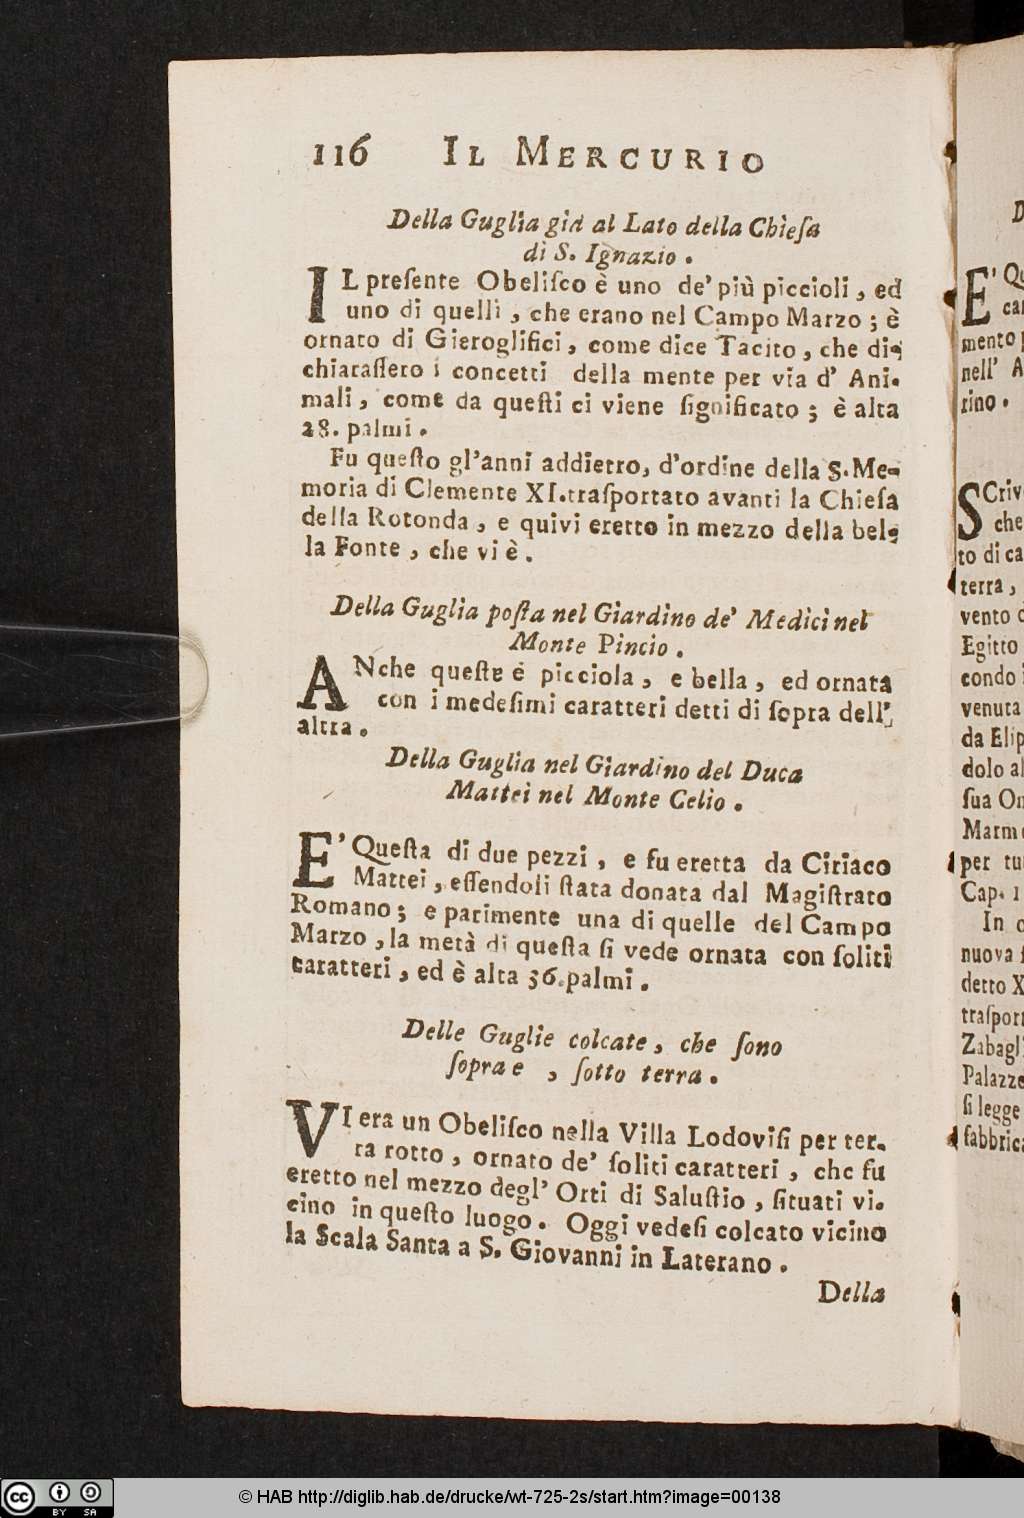 116 IL MERCURIO
Della Guglia già al Lato della Chieſa
di S. Ignazio .
IL preſente Obeliſco è uno de' più piccioli , ed
uno di quelli , che erano nel Campo Marzo ; è
ornato di Gieroglifici , come dice Tacito , che di-
chiaraſſero i concetti della mente per via d' Ani-
mali , come da queſti ci viene ſignificato ; è alta
28. palmi .
Fu queſto gl'anni addietro, d'ordine della S. Me-
moria di Clemente XI. traſportato avanti la Chieſa
della Rotonda , e quivi eretto in mezzo della bel-
la Fonte , che vi è .
Della Guglia poſta nel Giardino de' Medici nel
Monte Pincio .
ANche queſte è picciola , e bella , ed ornata
con i medeſimi caratteri detti di ſopra dell'
altra .
Della Guglia nel Giardino del Duca
Mattei nel Monte Celio .
E' Queſta di due pezzi , e fu eretta da Ciriaco
Mattei , eſſendoli ſtata donata dal Magiſtrato
Romano ; e parimente una di quelle del Campo
Marzo , la metà di queſta ſi vede ornata con ſoliti
caratteri , ed è alta 36. palmi .
Delle Guglie colcate , che ſono
ſopra e , ſotto terra .
VI era un Obeliſco nella Villa Lodoviſi per ter-
ra rotto , ornato de' ſoliti caratteri , che fu
eretto nel mezzo degl' Orti di Saluſtio , ſituati vi-
cino in queſto luogo . Oggi vedeſi colcato vicino
la Scala Santa a S. Giovanni in Laterano .
Della
E' Qu
mento
nell' A
rino .
SCriv
che
to di ca
terra ,
vento
Egitto
condo
venuta
da Elip
dolo al
ſua On
Marm
per tu
Cap. 1
In
nuova
detto X
traſpor
Zabagl
Palazze
ſi legge
fabbrica
© HAB http://diglib.hab.de/drucke/wt-725-2s/start.htm?image=00138
CC BY SA